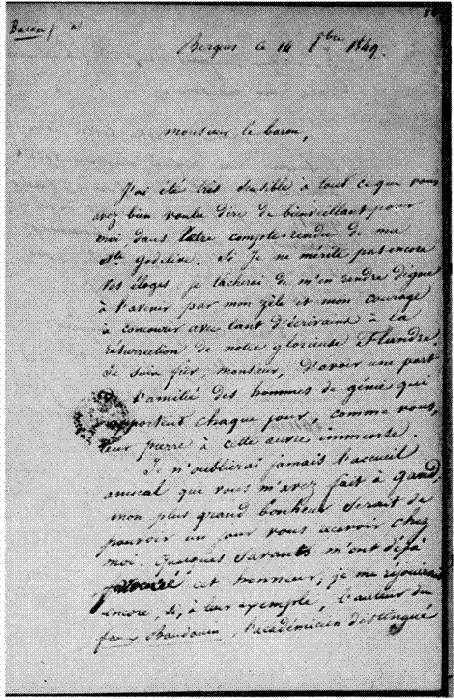 Bergues le 14 1849.
monsieur le baron,
J'ai été très sensible à tout ce que vous
avez bien voulu dire de bienveillant pour
moi dans votre compte-rendu de ma
Ste godelive. Si Je ne mérite pas encore
vos éloges, je tâcherai de m'en rendre digne
à l'avenir par mon zèle et mon courage
à concourir avec tant d'écrivains à la
résurrection de notre glorieuse Flandre.
Je suis fier, monsieur, d'avoir une part
à l'amitié des hommes de génie qui
apportent chaque jour, comme vous,
leur pierre à cette œuvre immense.
Je n'oublierai jamais l'accueil
amical que vous m'avez fait à gand,
mon plus grand bonheur serait de
pouvoir un jour vous recevoir chez
moi. quelques savants m'ont déjà
procuré cet honneur, je me réjouirais
encore, si, à leur exemple, l'auteur du
faux Baudouin, l'académicien distingué